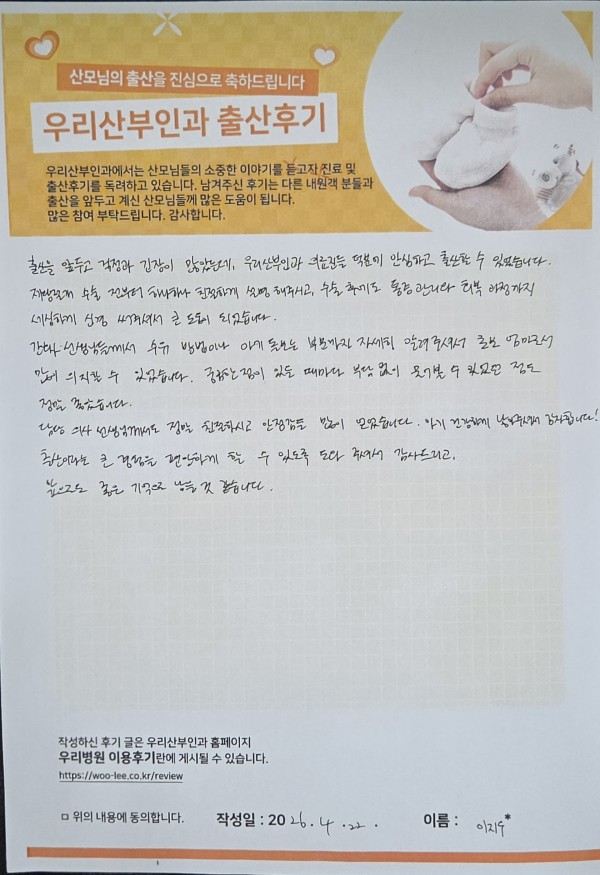 산모님의 출산을 진심으로 축하드립니다
우리산부인과 출산후기
우리산부인과에서는 산모님들의 소중한 이야기를 듣고자 진료 및
출산후기를 독려하고 있습니다. 남겨주신 후기는 다른 내원객 분들과
출산을 앞두고 계신 산모님들께 많은 도움이 됩니다.
많은 참여 부탁드립니다. 감사합니다.
출산을 앞두고 걱정과 긴장이 많았는데, 우리산부인과 의료진들 덕분에 안심하고 출산할 수 있었습니다.
제왕절개 수술 전부터 하나하나 친절하게 설명해주시고, 수술 후에도 통증 관리와 회복 과정까지
세심하게 신경 써주셔서 큰 도움이 되었습니다.
간호사 선생님들께서 수유 방법이나 아기 돌보는 부분까지 자세히 알려주셔서 초보 엄마로서
많이 의지할 수 있었습니다. 궁금한 점이 있을 때마다 부담 없이 물어볼 수 있었던 점도
정말 좋았습니다.
담당 의사 선생님께서도 정말 친절하시고 안정감을 많이 받았습니다. 아기 건강하게 낳게해주셔서 감사합니다!
출산이라는 큰 경험을 편안하게 할 수 있도록 도와 주셔서 감사드리고,
앞으로도 좋은 기억으로 남을 것 같습니다.
작성하신 후기 글은 우리산부인과 홈페이지
우리병원 이용후기란에 게시될 수 있습니다.
https://woo-lee.co.kr/review
ㅁ 위의 내용에 동의합니다. 작성일 : 2026. 4. 22. 이름 : 이지*